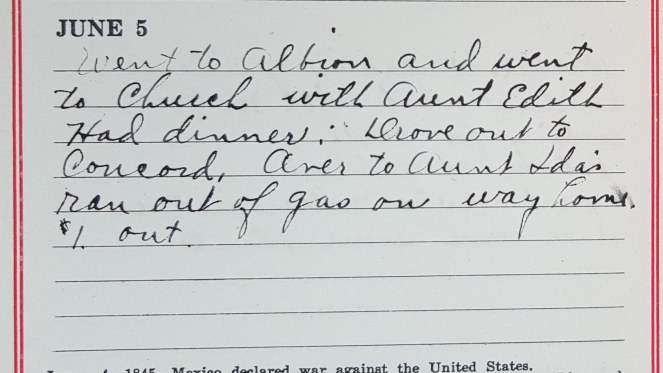 JUNE 5
Went to Albion and went
to Church with Aunt Edith
Had dinner. Drove out to
Concord, Over to Aunt Ida's
ran out of gas on way home.
$1. out.
4, 1845, Mexico declared war against the United States.